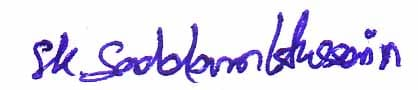 Sk. Saddam Hussain